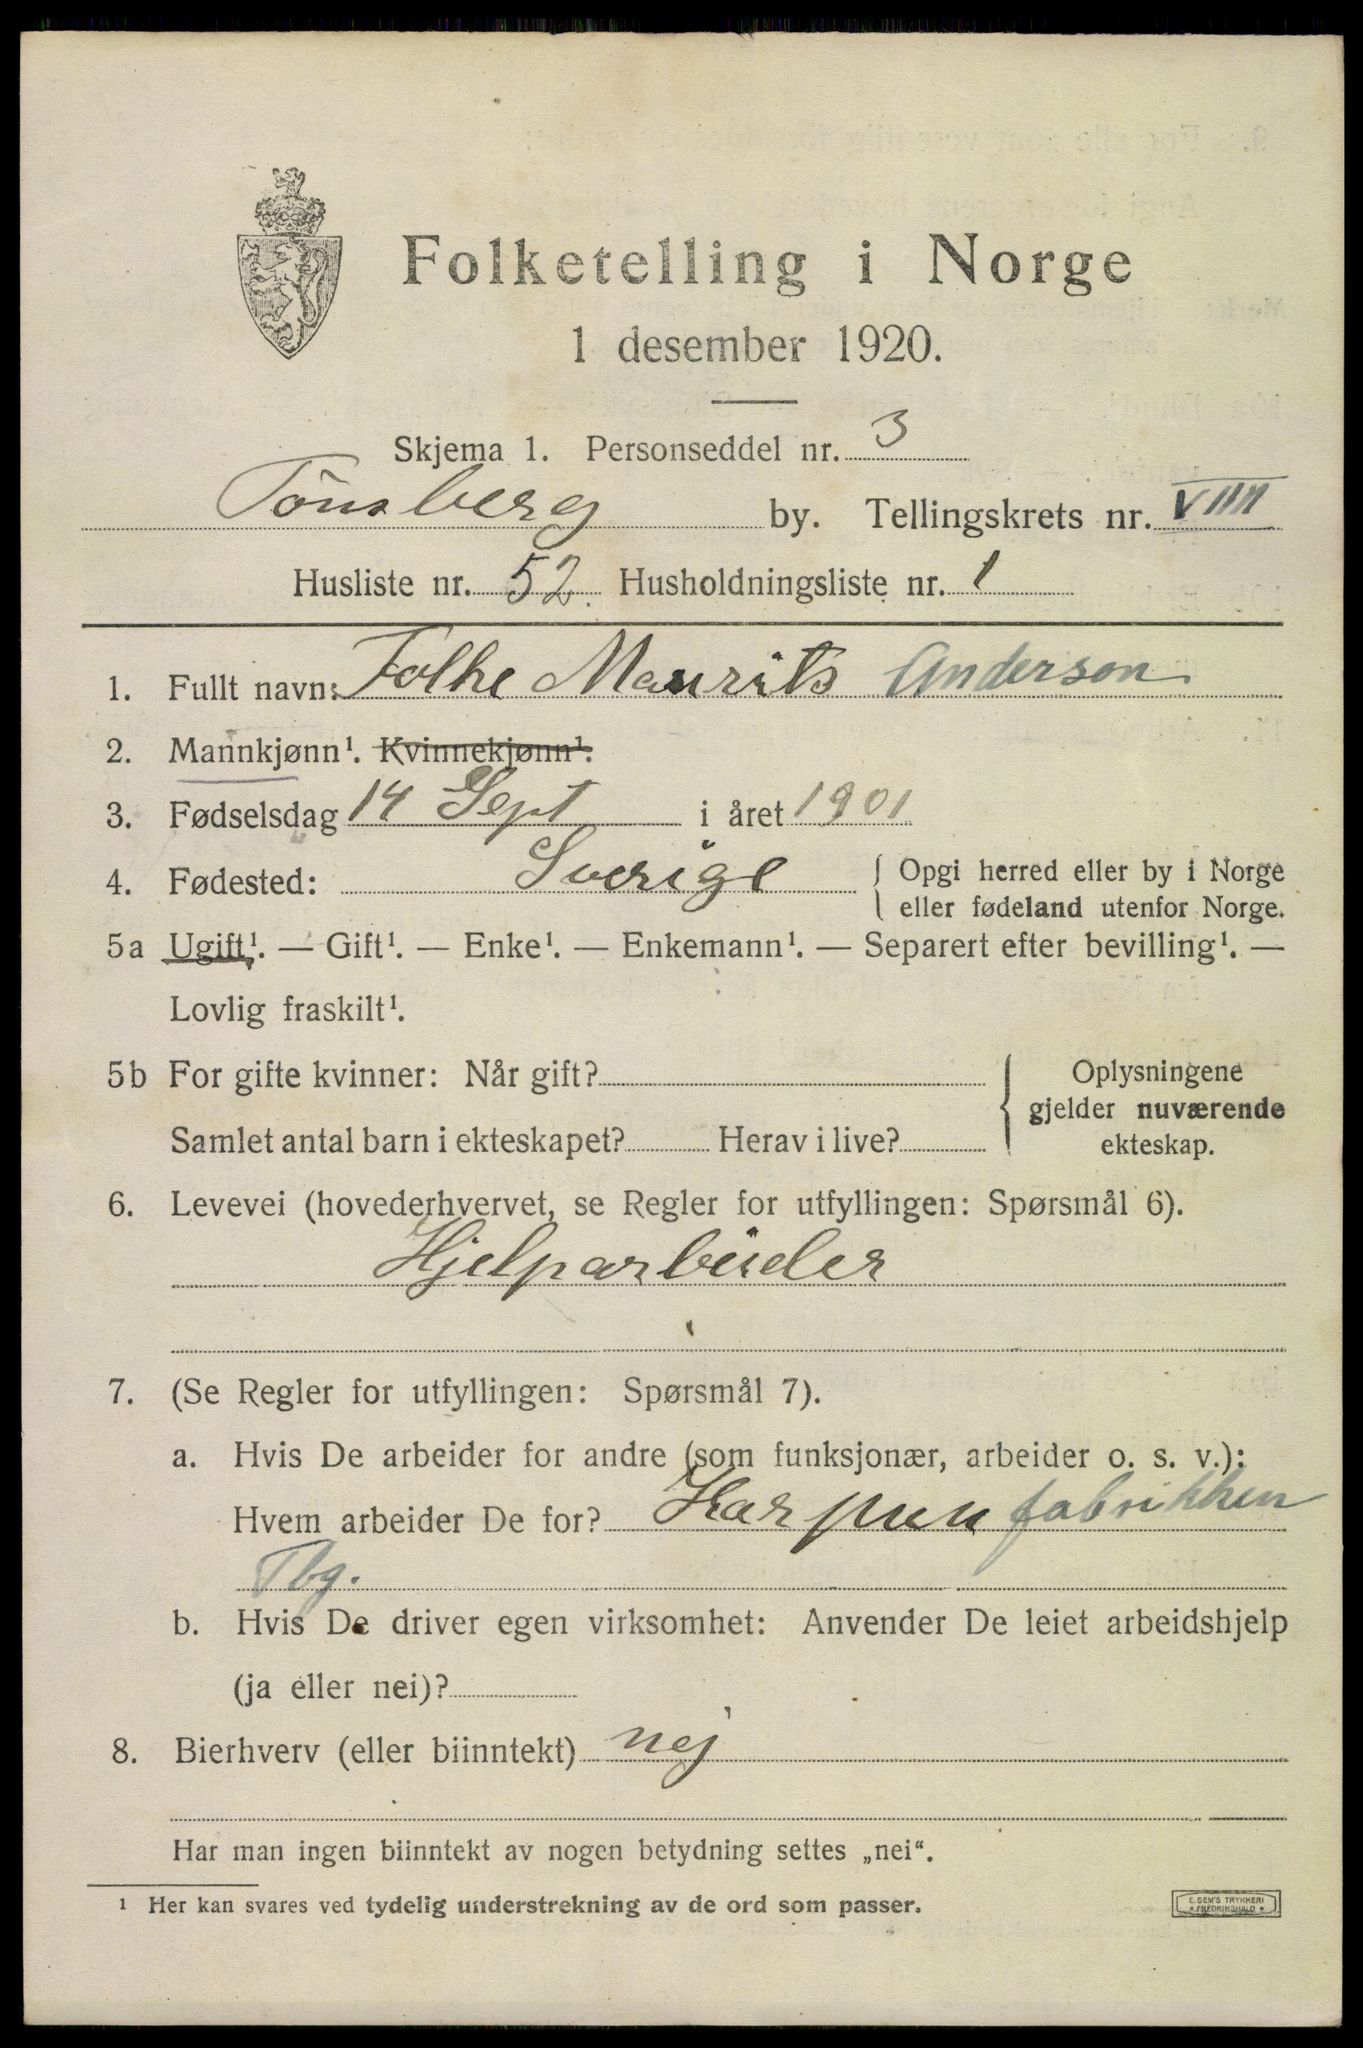 Folketelling i Norge
1 desember 1920.
Skjema 1. Personseddel nr. 3
Tönsberg by. Tellingskrets nr. VIIII
Husliste nr. 52. Husholdningsliste nr. 1
1. Fullt navn: Folke Maurits Anderson
2. Mannkjønn¹. Kvinnekjønn¹.
3. Fødselsdag 14 Sept i året 1901
4. Fødested: Sverige { Opgi herred eller by i Norge
eller fødeland utenfor Norge.
5a Ugift¹. — Gift¹. — Enke¹. — Enkemann¹. — Separert efter bevilling¹. —
Lovlig fraskilt¹.
5b For gifte kvinner: Når gift?
Samlet antal barn i ekteskapet? Herav i live?
{ Oplysningene
gjelder nuværende
ekteskap.
6. Levevei (hovederhvervet, se Regler for utfyllingen: Spørsmål 6).
Hjelparbeider
7. (Se Regler for utfyllingen: Spørsmål 7).
a. Hvis De arbeider for andre (som funksjonær, arbeider o. s. v.):
Hvem arbeider De for? Harpunfabrikken
Tbg.
b. Hvis De driver egen virksomhet: Anvender De leiet arbeidshjelp
(ja eller nei)?
8. Bierhverv (eller biinntekt) nej
Har man ingen biinntekt av nogen betydning settes „nei“.
¹ Her kan svares ved tydelig understrekning av de ord som passer.
E. SEM'S TRYKKERI
* FREDRIKSHALD *